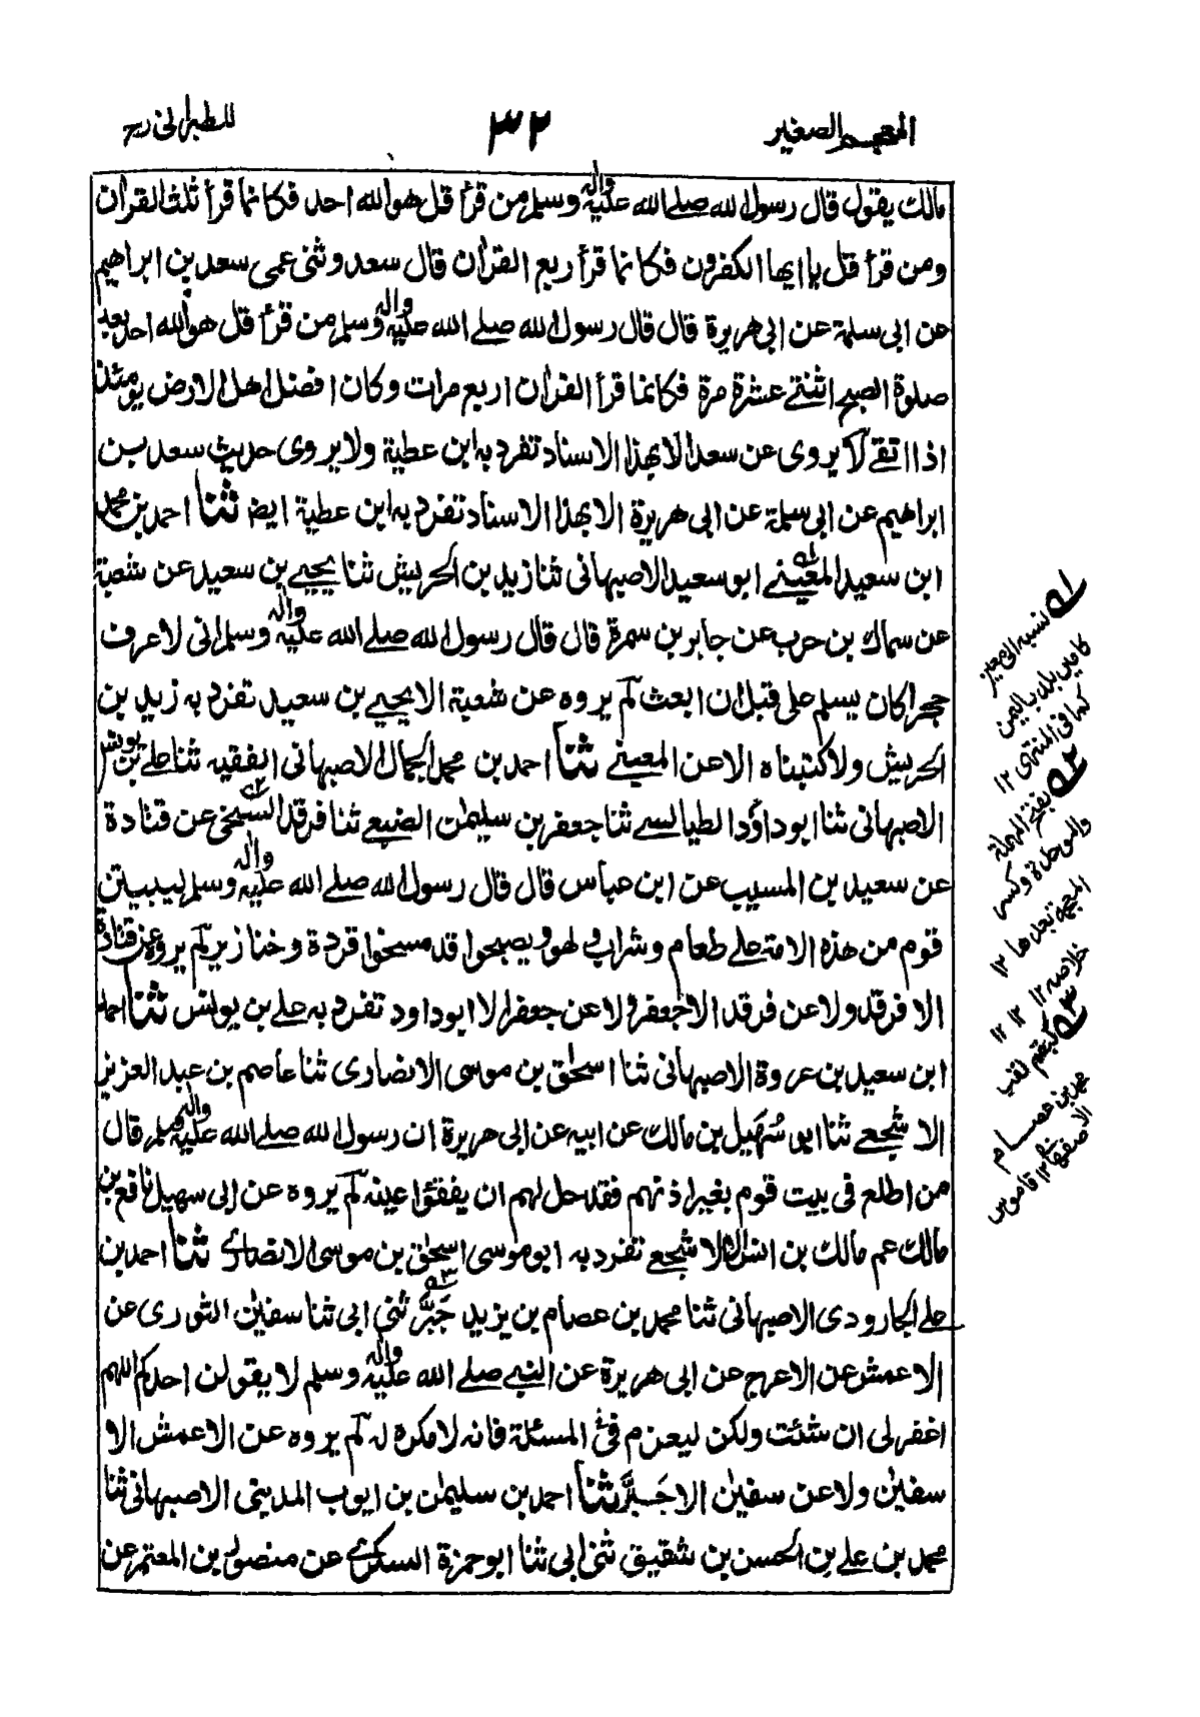 المعجم الصغير
٣٢
للطبرانی رح
مالك يقول قال رسول الله صلے الله عليه واله وسلم من قرأ قل هو الله احد فكانما قرأ ثلث القران
ومن قرأ قل يا ايها الكفرون فكانما قرأ ربع القران قال سعد وثنی عمی سعد بن ابراهيم
عن ابی سلمة عن ابی هريرة قال قال رسول الله صلے الله عليه واله وسلم من قرأ قل هو الله احد بعد
صلوة الصبح اثنتے عشرة مرة فكانما قرأ القران اربع مرات وكان افضل اهل الارض يومئذ
اذا اتقے لا يروی عن سعد الا بهذا الاسناد تفرد به ابن عطية ولا يروی حديث سعد بن
ابراهيم عن ابی سلمة عن ابی هريرة الا بهذا الاسناد تفرد به ابن عطية ايضا ثنا احمد بن محمد
ابن سعيد المعينے ابو سعيد الاصبهانی ثنا زيد بن الحريش ثنا يحيے بن سعيد عن شعبة
عن سماك بن حرب عن جابر بن سمرة قال قال رسول الله صلے الله عليه واله وسلم انی لاعرف
حجرا كان يسلم علی قبل ان ابعث لم يروه عن شعبة الا يحيے بن سعيد تفرد به زيد بن
الحريش ولا كتبناه الا عن المعينے ثنا احمد بن محمد الجمال الاصبهانی الفقيه ثنا علے بن يونس
الاصبهانی ثنا ابو داؤد الطيالسے ثنا جعفر بن سليمان الضبعے ثنا فرقد السبخی عن قتادة
عن سعيد بن المسيب عن ابن عباس قال قال رسول الله صلے الله عليه واله وسلم ليبيتن
قوم من هذه الامة علے طعام وشراب ولهو ويصبحوا قد مسخوا قردة وخنازير لم يروه عن قتادة
الا فرقد ولا عن فرقد الا جعفر ولا عن جعفر الا ابو داود تفرد به علے بن يونس ثنا احمد
ابن سعيد بن عروة الاصبهانی ثنا اسحٰق بن موسی الانصاری ثنا عاصم بن عبد العزيز
الاشجعے ثنا ابو سُهَيل بن مالك عن ابيه عن ابی هريرة ان رسول الله صلے الله عليه واله وسلم قال
من اطلع فی بيت قوم بغير اذنهم فقد حل لهم ان يفقؤا عينه لم يروه عن ابی سهيل نافع بن
مالك عم مالك بن انس الا الاشجعے تفرد به ابو موسی اسحٰق بن موسی الانصاری ثنا احمد بن
علے الجارودی الاصبهانی ثنا محمد بن عصام بن يزيد جَبَّر ثنی ابی ثنا سفيٰن الثوری عن
الاعمش عن الاعرج عن ابی هريرة عن النبے صلے الله عليه واله وسلم لا يقولن احدكم اللهم
اغفر لی ان شئت ولكن ليعزم فی المسئلة فانه لا مكره له لم يروه عن الاعمش الا
سفيٰن ولا عن سفيٰن الا جَبَّر ثنا احمد بن سليمٰن بن ايوب المدينی الاصبهانی ثنا
محمد بن علے بن الحسن بن شقيق ثنی ابی ثنا ابو حمزة السكری عن منصور بن المعتمر عن
١ نسبه الی معين
كامين بلد باليمن
كما فی المنتهی ١٢
٢ بفتح المهملة
والموحدة وكسر
المعجمة بعدها ١٢
خلاصه ١٢ ١٢ ١٢
٣ كبقم لقب
محمد بن عصام
الاصفهانی ١٢ قاموس